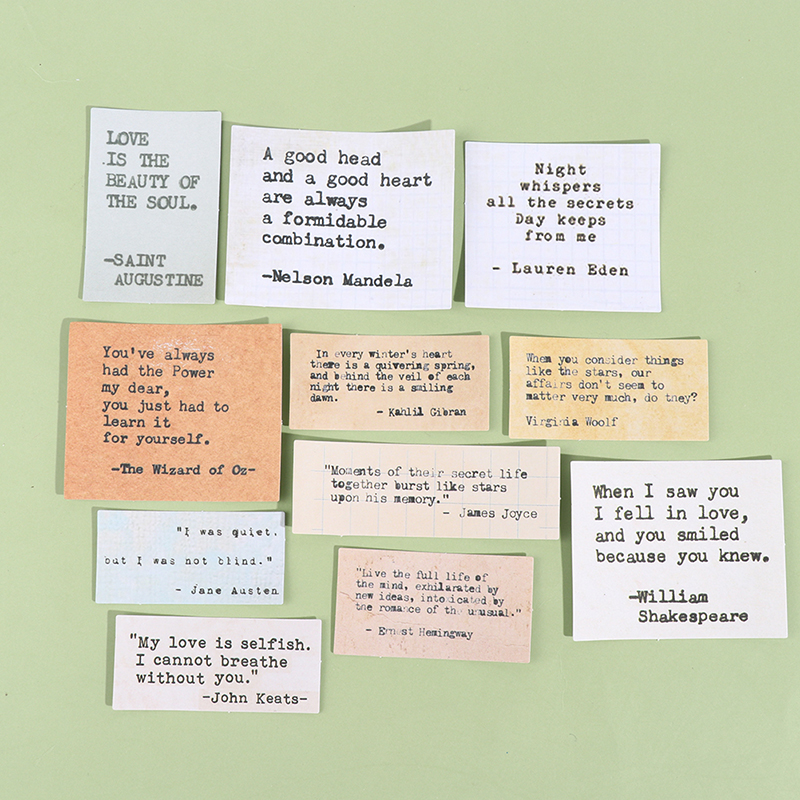 LOVE
.IS THE
BEAUTY OF
THE SOUL.
—SAINT
AUGUSTINE
A good head
and a good heart
are always
a formidable
combination.
—Nelson Mandela
Night
whispers
all the secrets
Day keeps
from me
- Lauren Eden
You've always
had the Power
my dear,
you just had to
learn it
for yourself.
—The Wizard of Oz-
In every winter's heart
there is a quivering spring,
and behind the veil of each
night there is a smiling
dawn.
- Kahlil Gibran
When you consider things
like the stars, our
affairs don't seem to
matter very much, do they?
Virginia Woolf
"Moments of their secret life
together burst like stars
upon his memory."
- James Joyce
When I saw you
I fell in love,
and you smiled
because you knew.
—William
Shakespeare
"I was quiet,
but I was not blind."
- Jane Austen
"Live the full life of
the mind, exhilarated by
new ideas, intoxicated by
the romance of the unusual."
- Ernest Hemingway
"My love is selfish.
I cannot breathe
without you."
-John Keats-